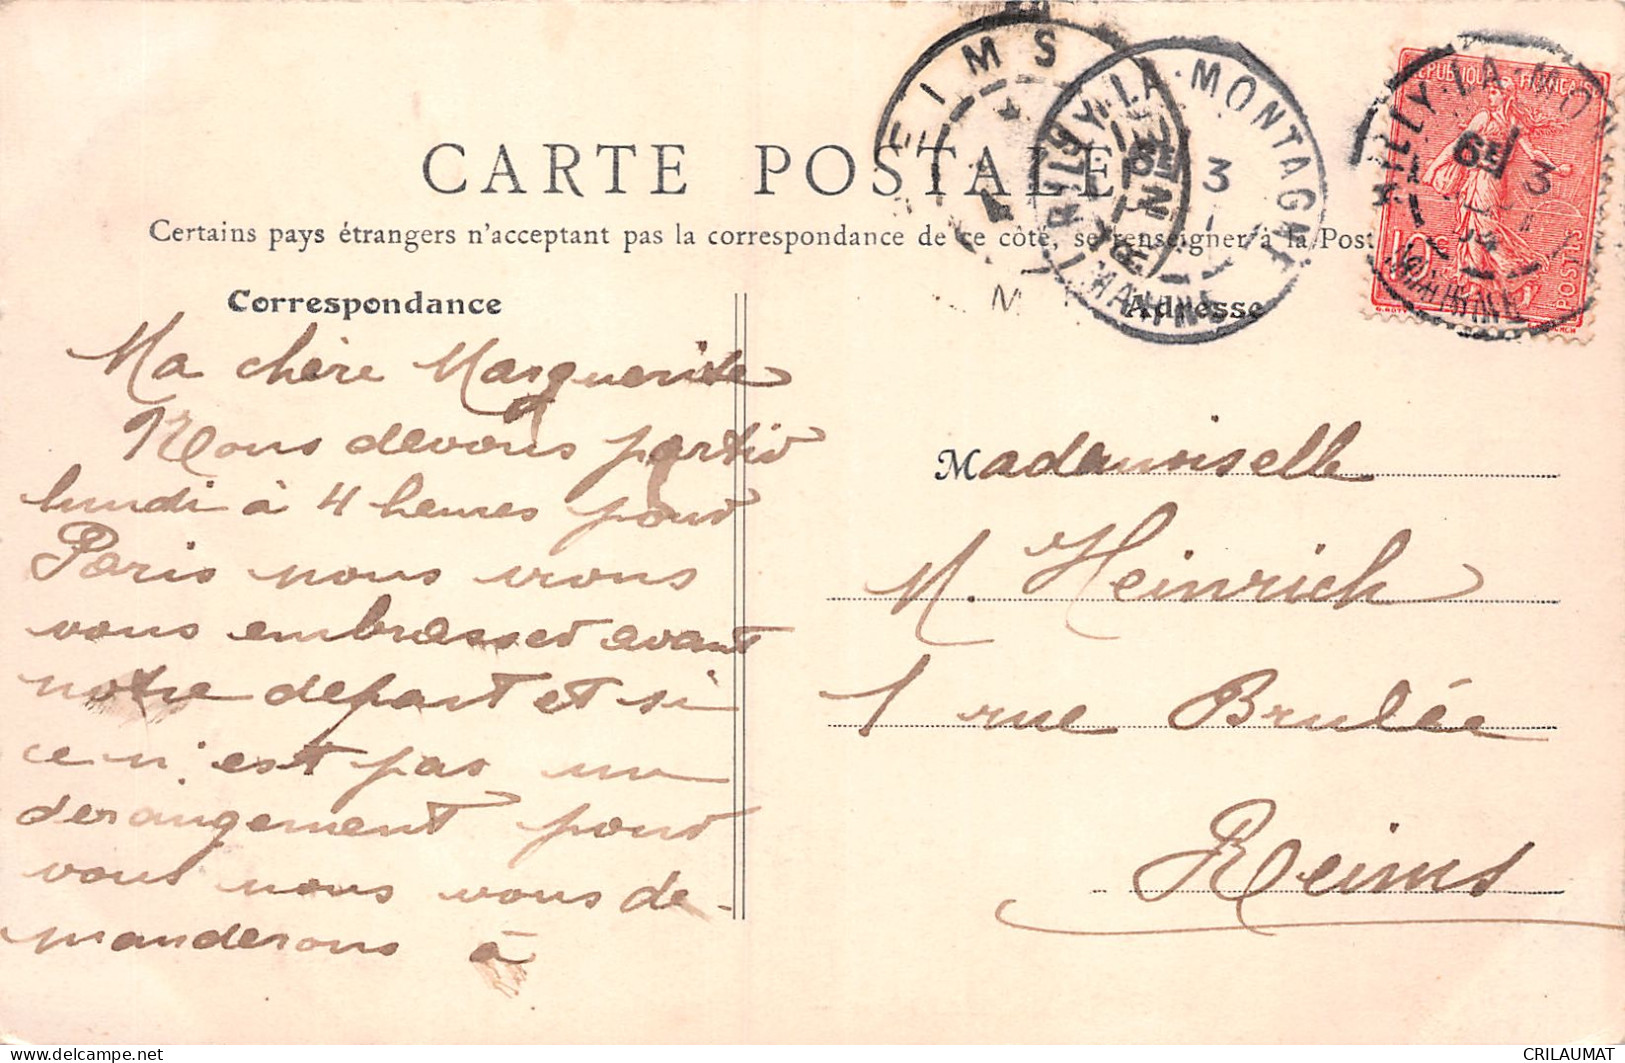 CARTE POSTALE
Certains pays étrangers n'acceptent pas la correspondance de ce côté, se renseigner à la Post
Correspondance
Ma chère Marguerite
Nous devons partir
lundi à 4 heures pour
Paris nous irons
vous embrasser avant
notre depart et si
ce n'est pas un
derangement pour
vous nous vous de-
manderons à
Adresse
Mademoiselle
M. Heinrich
1 rue Brulée
Reims
REIMS
RILLY-LA-MONTAGNE
MARNE
6E
3
RILLY-LA-MON
6E
3
MARNE
REPUBLIQUE FRANÇAISE
10c
POSTES
delcampe.net
CRILAUMAT